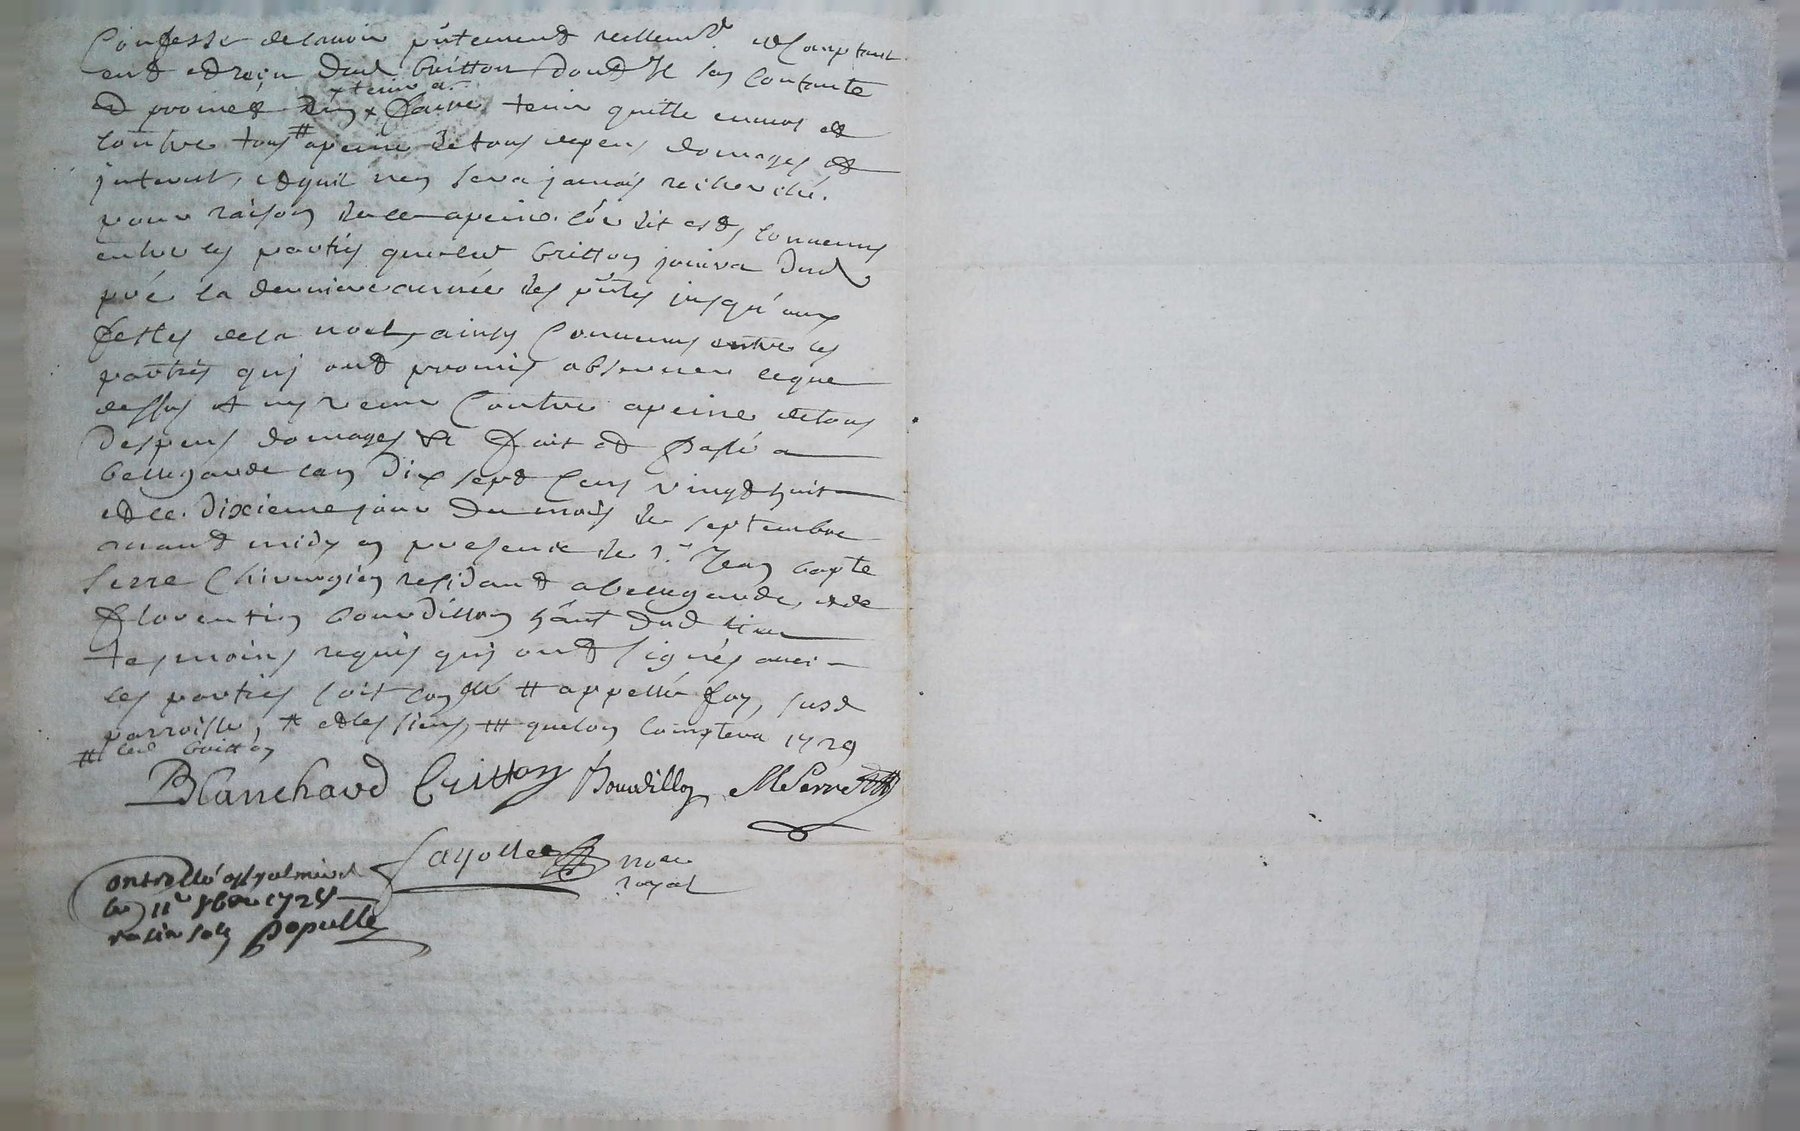 Confesse delavoir pñtement reellemt et Comptant
eud et reçu dud Gritton dont Il sen Contante
et promet
x tenir a
faire tenir quitte envers et
contre tous # apeine de tous depens domages et
jnterest, et quil nen sera jamais recherché.
pour raison de ce apeine côe dit est, convenus
entre les parties que led Gritton jouira dud
pré la derniere année des pñtes jusqu'aux
festes de la noel, ainsy Convenus entre les
parties quj ont promis observer ceque
dessus et ny venir Contre apeine detous
Despens domages &c fait et passé a
bellegarde lan Dix sept Cens vingt huit
et le dixieme jour du mois de septembre
avant midy en presence de sr Jean bapte
Serre Chirurgien residant a bellegarde, et de
florentin bourdillon háñt dud lieu
tesmoins requis quj ont signés avec
les parties soit con^llé # appellé foy, susd
parroisse, * et les siens, ## quelon Comptera 1729
# led Gritton
Blanchard Gritton Bourdillon Serre
Cayollee noe
royal
Controllé a st galmier
le 11e 7bre 1728
Populle